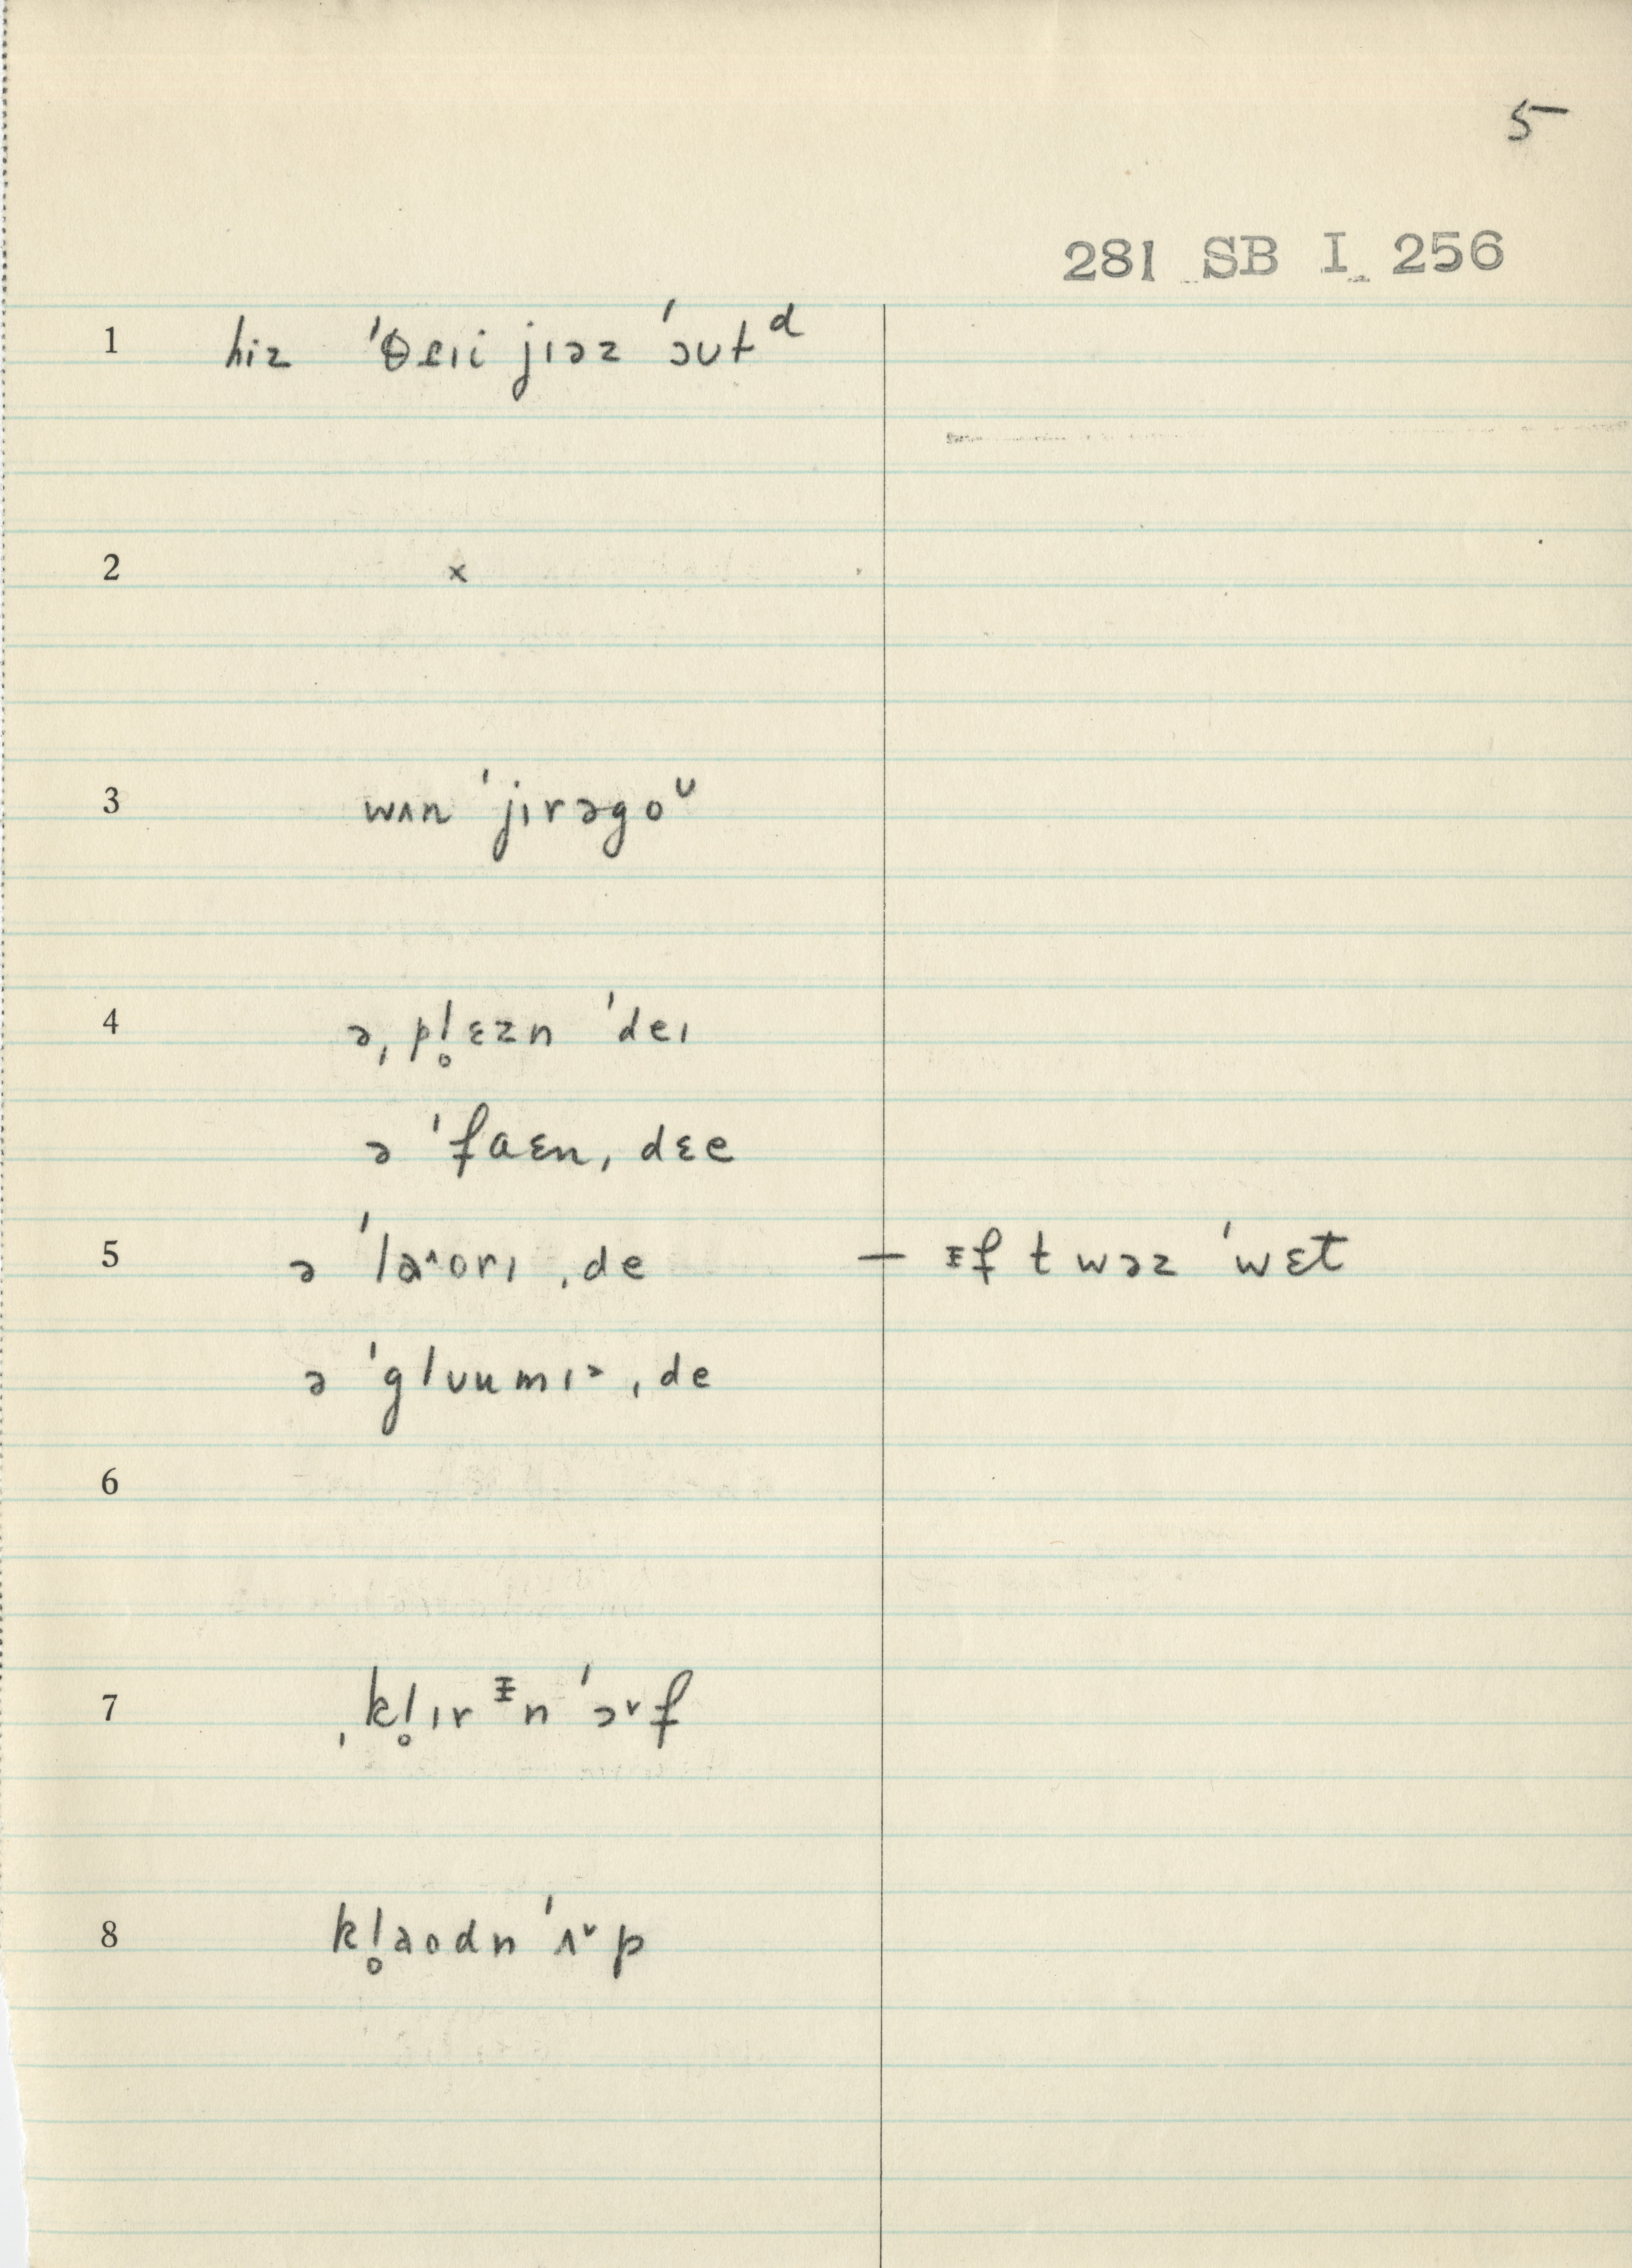 5
281 SB I 256
1 hiz ˈθɛɪi jɪəz ˈɔʊtᵈ
2 x
3 wʌn ˈjɪrəgoᶷ
4 ə ˌpl̥ɛzn ˈdeɪ
ə ˈfaɛn ˌdɛe
5 ə ˈlaˆorɪ ˌde — ɪf t wəz ˈwɛt
ə ˈglʊumɪə ˌde
6
7 ˌkl̥ɪrɪn ˈɔ˅f
8 kl̥aodn ˈʌ˅p